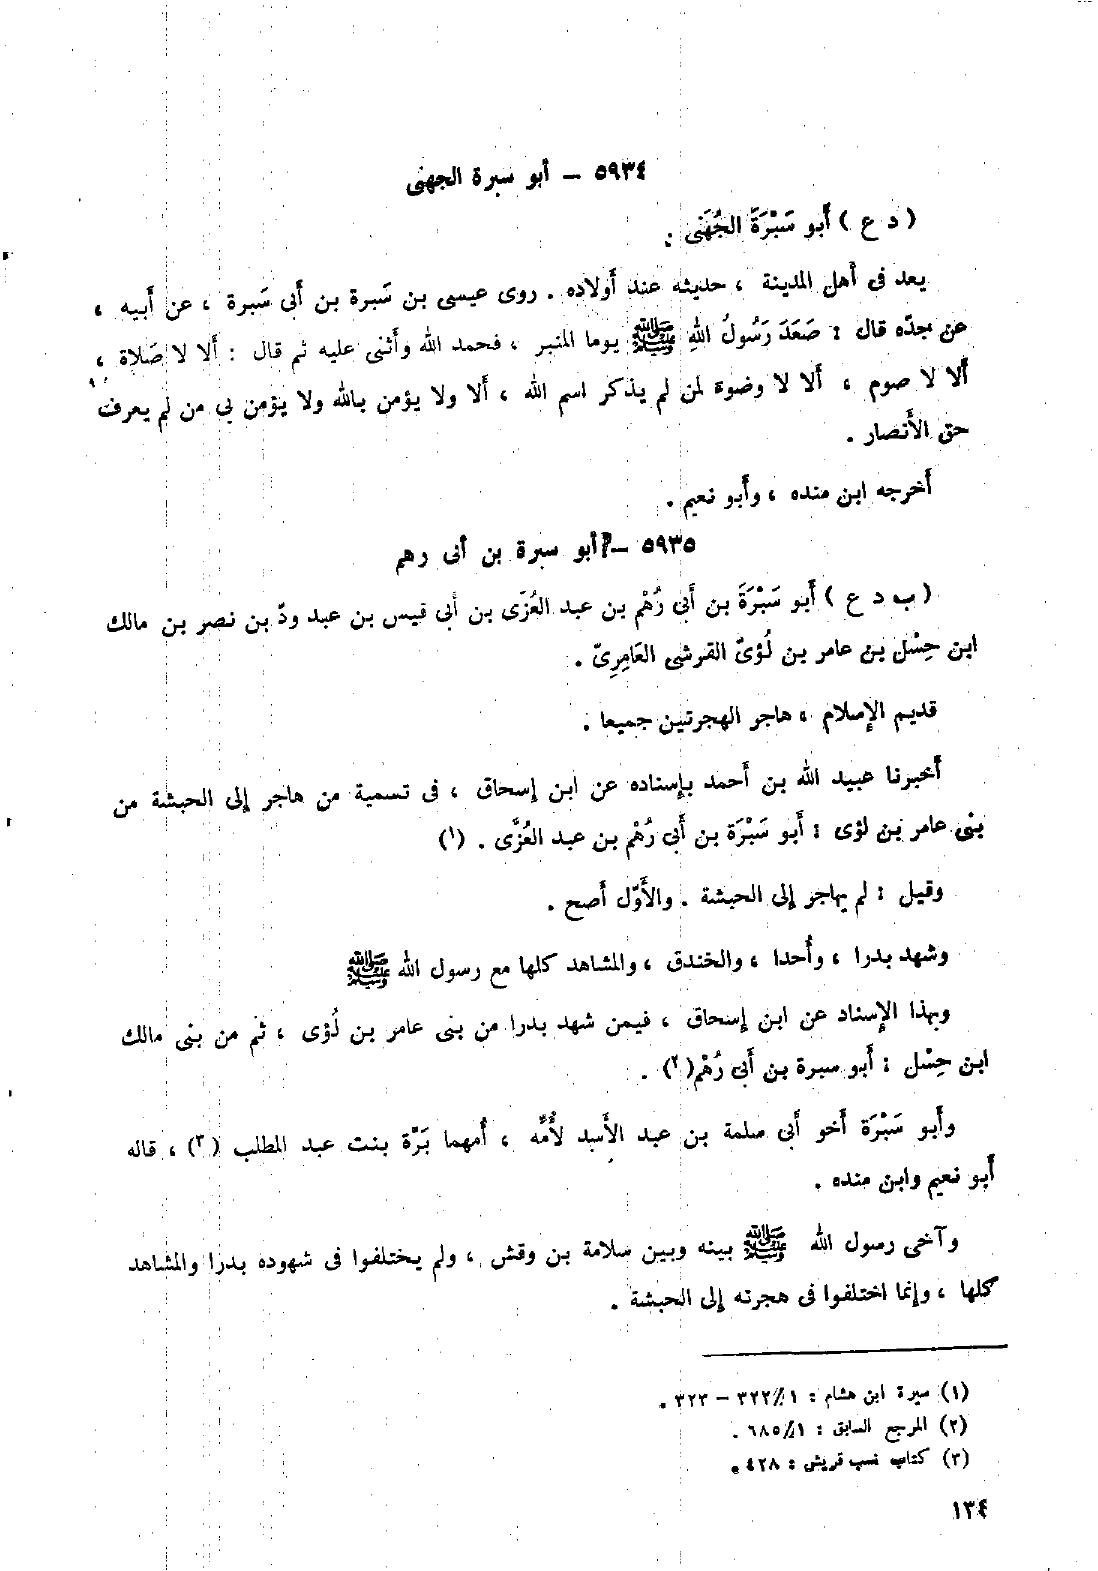 ٥٩٣٤ – أبو سبرة الجهنى
( د ع ) أَبو سَبْرَةَ الجُهَنى :
يعد فى أَهل المدينة ، حديثه عند أَولاده . روى عيسى بن سَبرة بن أَبى سَبرة ، عن أَبيه ،
عن جدّه قال : صَعَدَ رَسُولُ اللهِ ﷺ يوما المنبر ، فحمد الله وأَثنى عليه ثم قال : أَلا لا صَلاة ،
أَلا لا صوم ، أَلا لا وضوءَ لمن لم يذكر اسم الله ، أَلا ولا يؤمن بالله ولا يؤمن بى من لم يعرف
حق الأَنصار .
أَخرجه ابن منده ، وأَبو نعيم .
٥٩٣٥ – أبو سبرة بن أبى رهم
( ب د ع ) أَبو سَبْرَةَ بن أَبى رُهْم بن عبد العُزَّى بن أَبى قيس بن عبد ودّ بن نصر بن مالك
ابن حِسْل بن عامر بن لُؤىّ القرشى العَامِرِىّ .
قديم الإِسلام ، هاجر الهجرتين جميعا .
أَخبرنا عبيد الله بن أَحمد بإِسناده عن ابن إِسحاق ، فى تسمية من هاجر إِلى الحبشة من
بنى عامر بن لؤى : أَبو سَبْرَة بن أَبى رُهْم بن عبد العُزَّى . (١)
وقيل : لم يهاجر إِلى الحبشة . والأَوّل أَصح .
وشهد بدرا ، وأُحدا ، والخندق ، والمشاهد كلها مع رسول الله ﷺ
وبهذا الإِسناد عن ابن إِسحاق ، فيمن شهد بدرا من بنى عامر بن لُؤى ، ثم من بنى مالك
ابن حِسْل : أَبو سبرة بن أَبى رُهْم(٢) .
وأَبو سَبْرَة أَخو أَبى سلمة بن عبد الأَسد لأُمِّه ، أُمهما بَرَّة بنت عبد المطلب (٣) ، قاله
أَبو نعيم وابن منده .
وآخى رسول الله ﷺ بينه وبين سلامة بن وقش ، ولم يختلفوا فى شهوده بدرا والمشاهد
كلها ، وإِنما اختلفوا فى هجرته إِلى الحبشة .
(١) سيرة ابن هشام : ١/‏٣٢٢ – ٣٢٣ .
(٢) المرجع السابق : ١/‏٦٨٥ .
(٣) كتاب نسب قريش : ٤٢٨ .
١٣٤